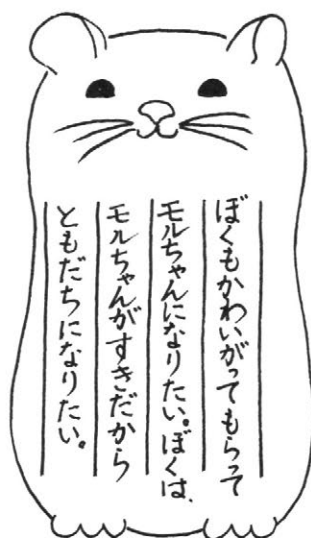 ぼくもかわいがってもらって
モルちゃんになりたい。ぼくは、
モルちゃんがすきだから
ともだちになりたい。